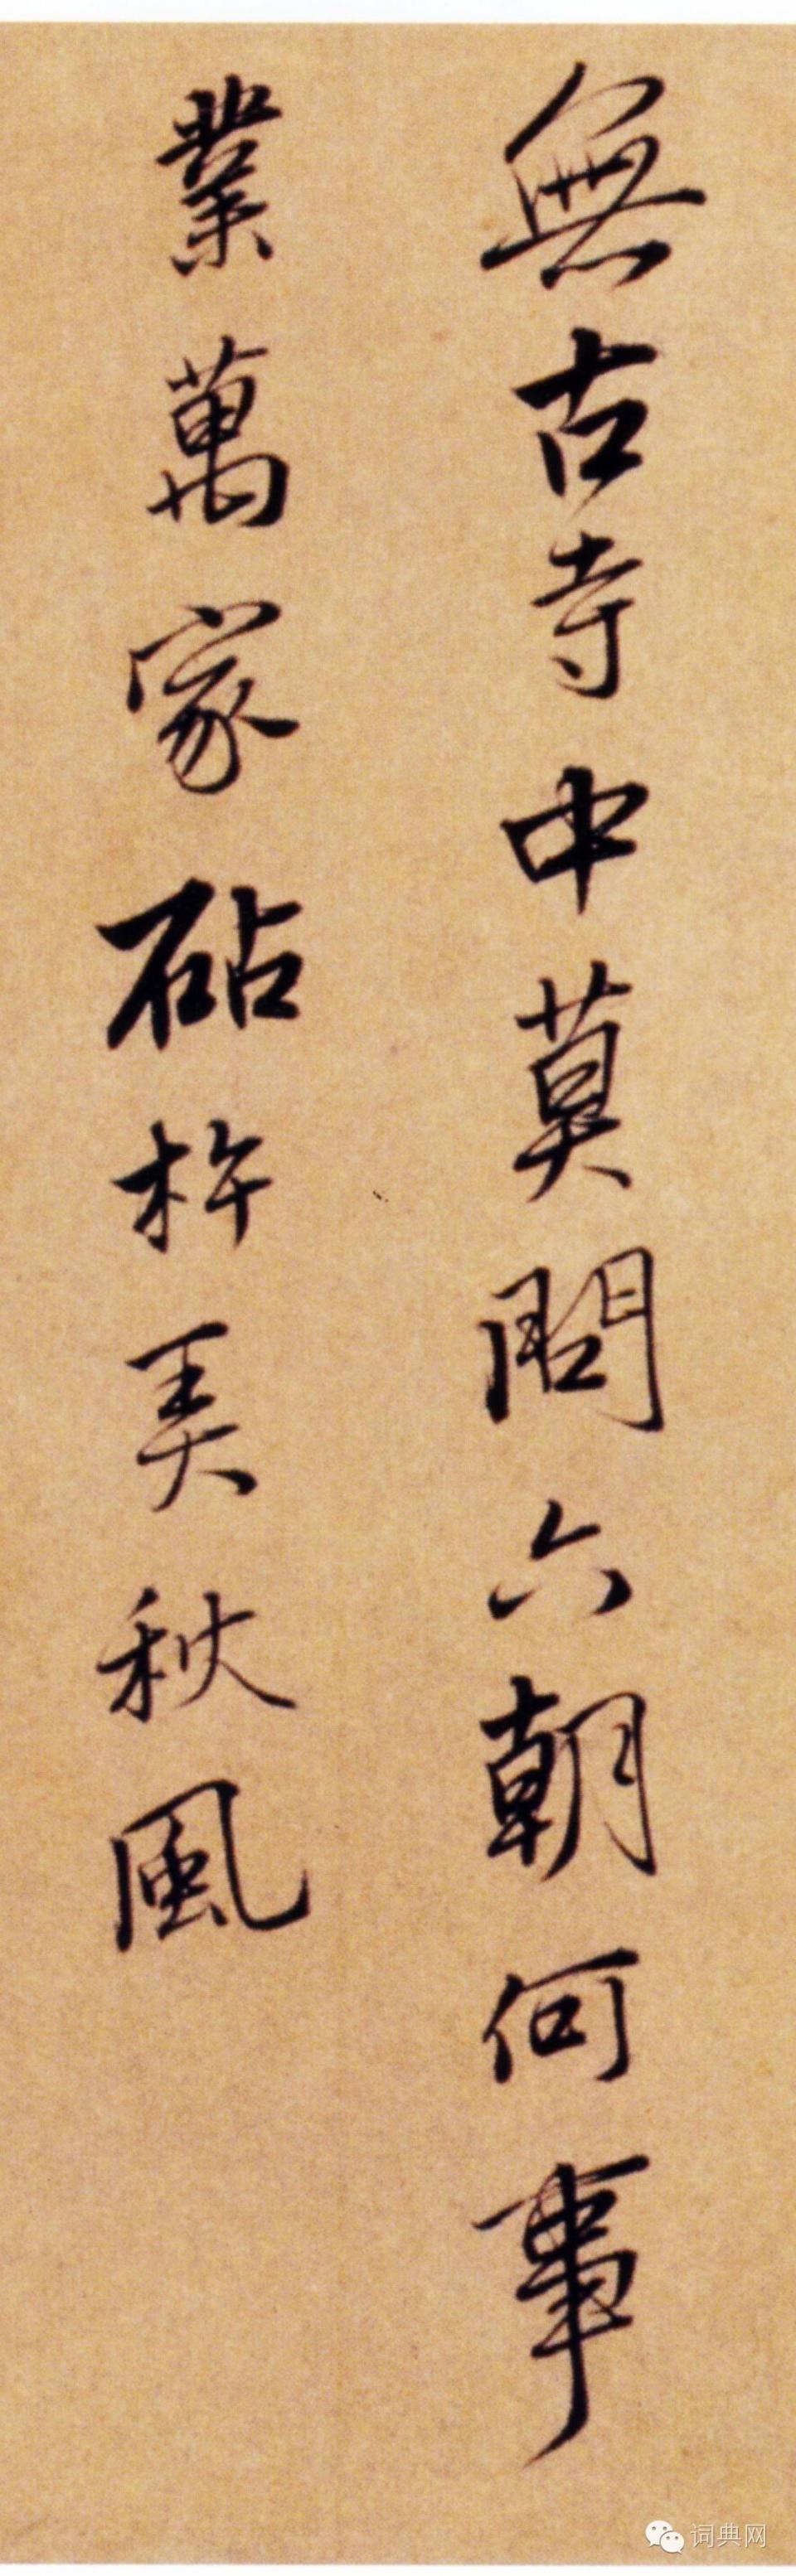 無古寺中莫問六朝何事
業萬家砧杵美秋風
词典网